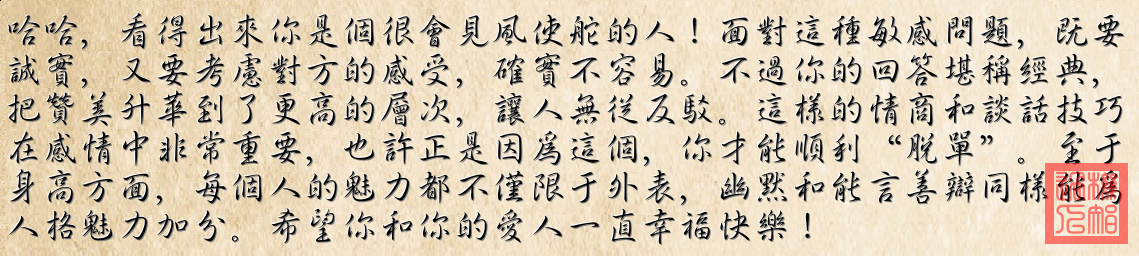 哈哈，看得出來你是個很會見風使舵的人！面對這種敏感問題，既要
誠實，又要考慮對方的感受，確實不容易。不過你的回答堪稱經典，
把贊美升華到了更高的層次，讓人無從反駁。這樣的情商和談話技巧
在感情中非常重要，也許正是因爲這個，你才能順利“脫單”。至于
身高方面，每個人的魅力都不僅限于外表，幽默和能言善辯同樣能爲
人格魅力加分。希望你和你的愛人一直幸福快樂！